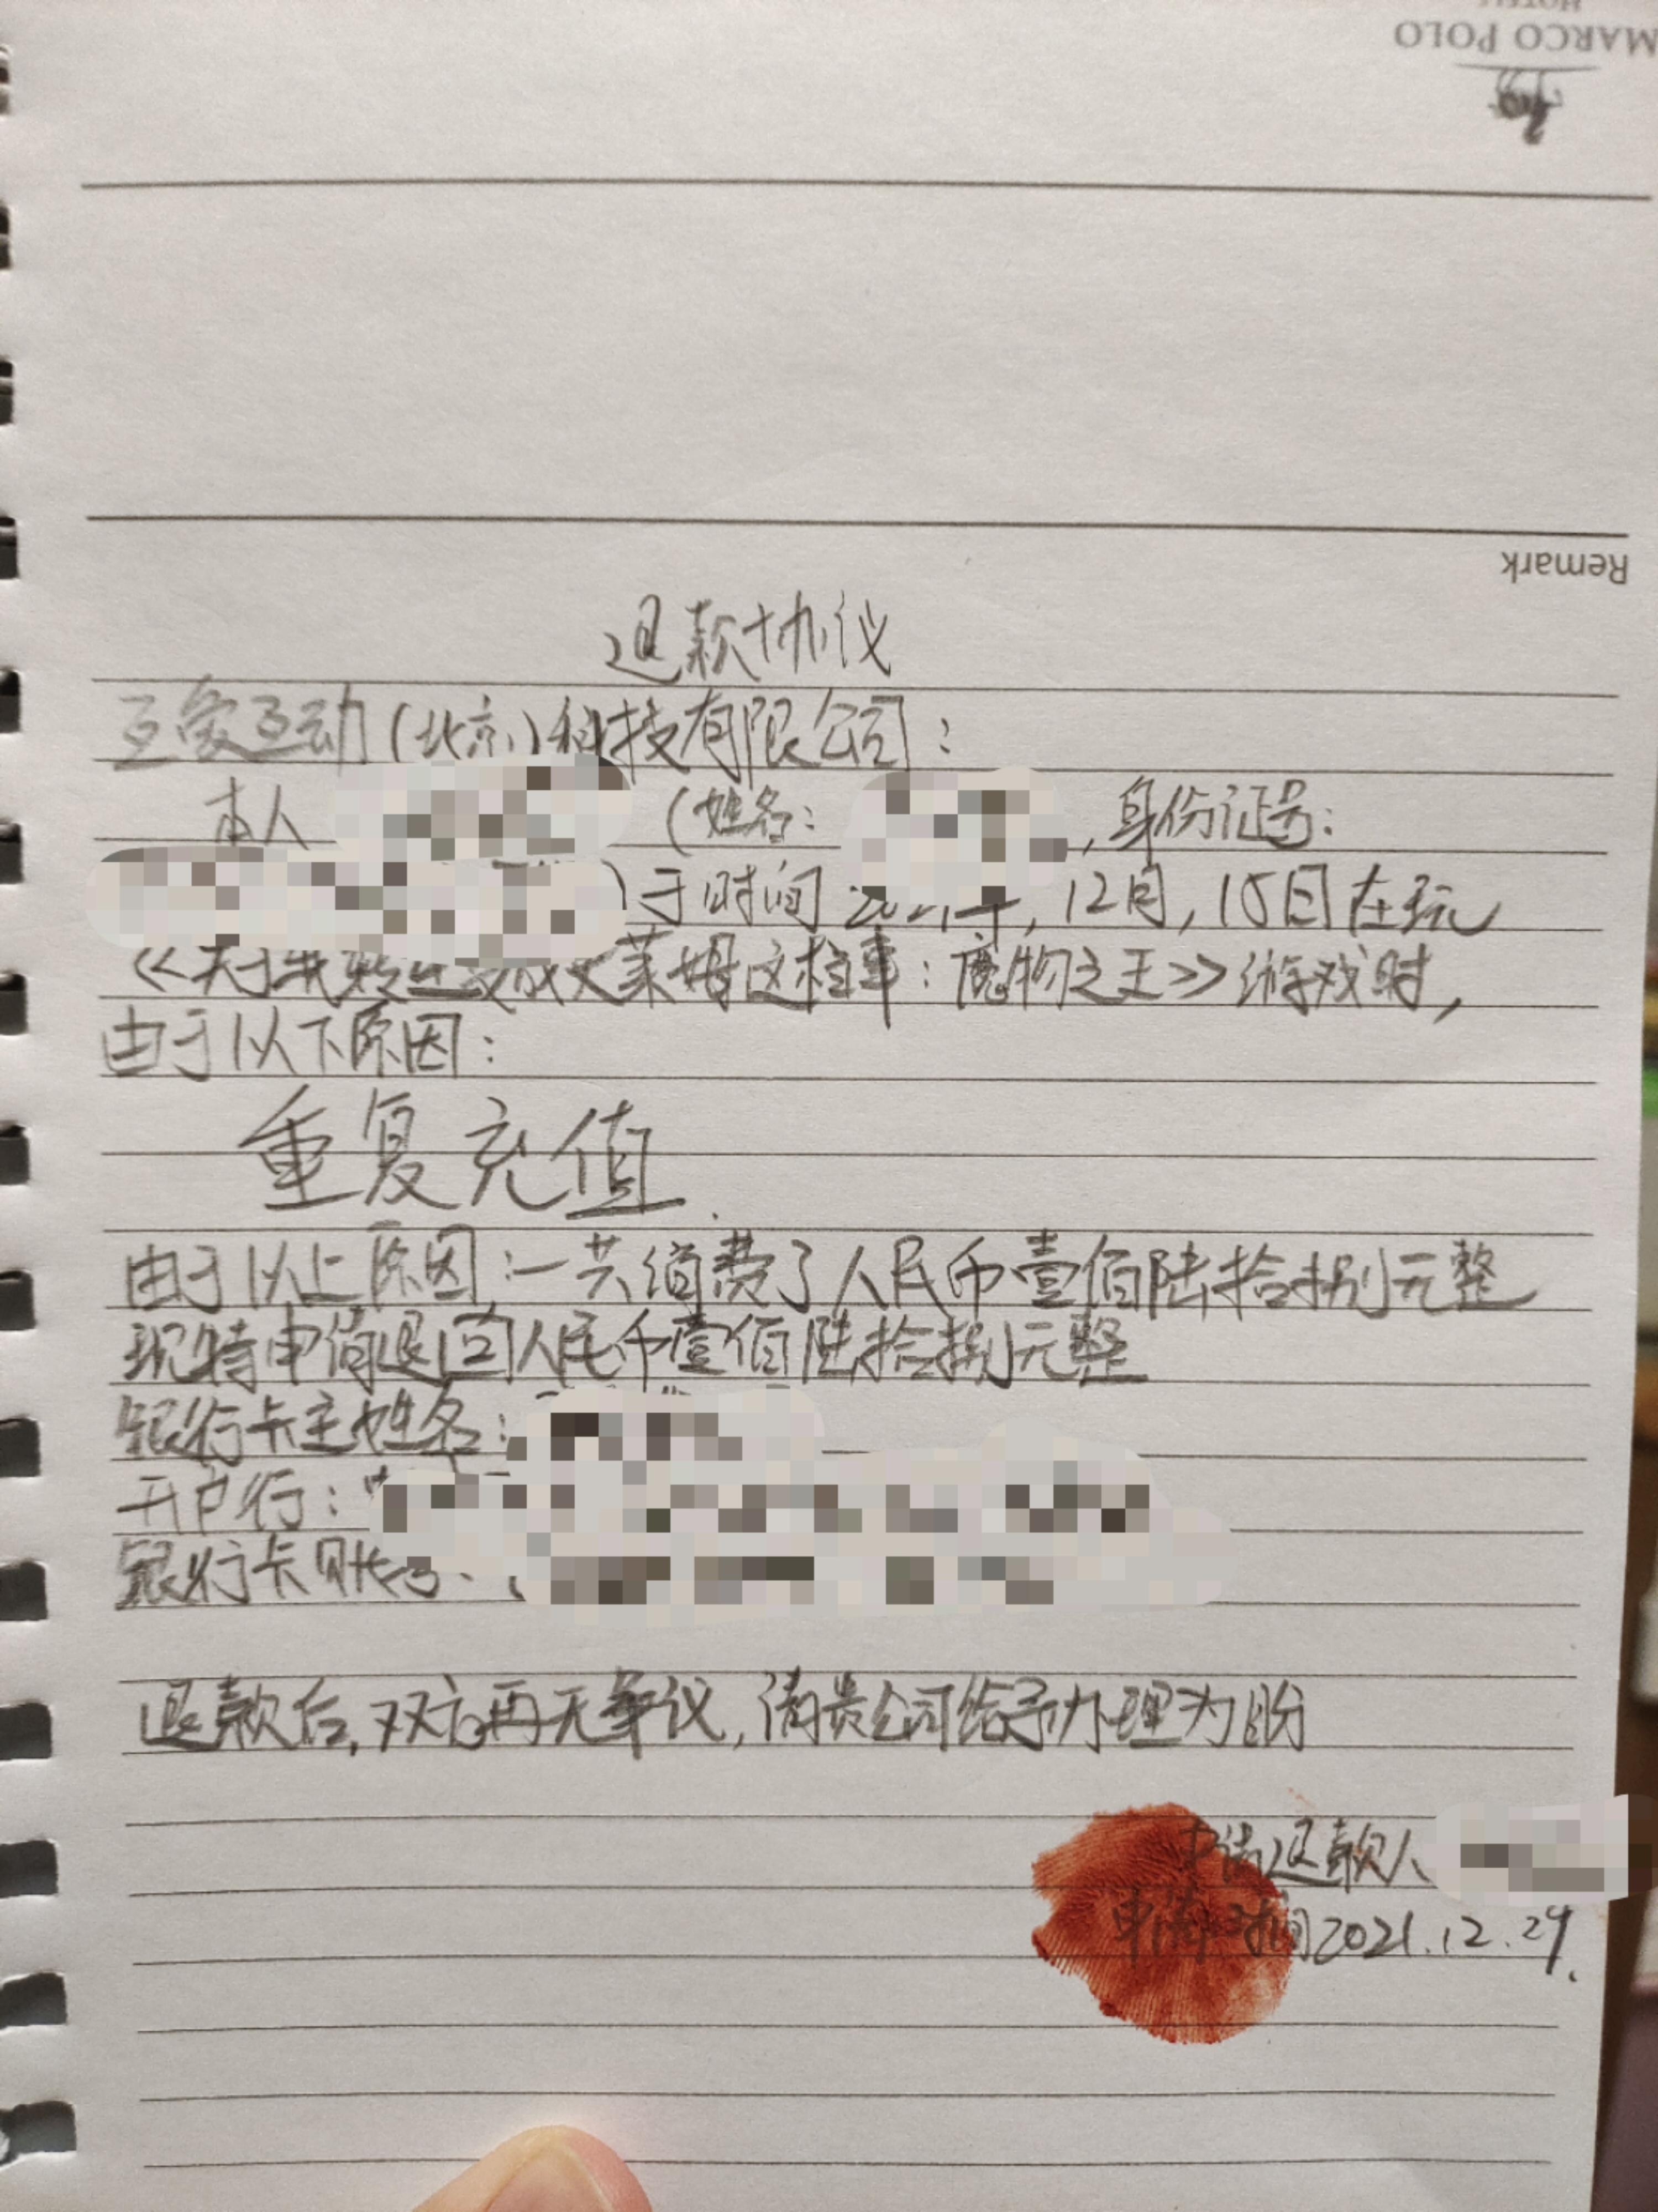 HOTELS
MARCO POLO
Remark
退款协议
互象互动(北京)科技有限公司:
本人 (姓名: ,身份证号:
)于时间2021年,12月,15日在玩
《关于我转生变成史莱姆这档事:魔物之王》游戏时,
由于以下原因:
重复充值.
由于以上原因:一共消费了人民币壹佰陆拾捌元整
现特申请退回人民币壹佰陆拾捌元整
银行卡主姓名:
开户行:
银行卡账号:
退款后,双方再无争议,请贵公司给予办理为盼
申请退款人
申请时间2021.12.29.